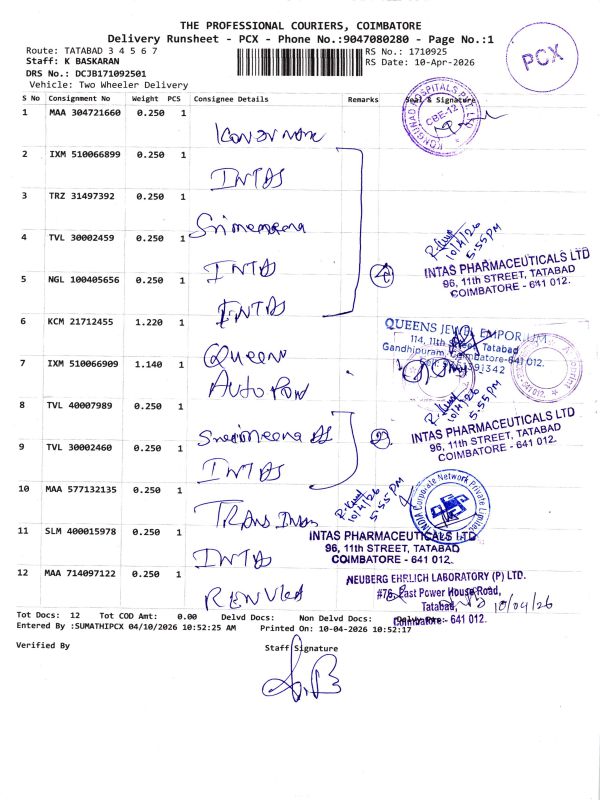 THE PROFESSIONAL COURIERS, COIMBATORE
Delivery Runsheet - PCX - Phone No.:9047080280 - Page No.:1
Route: TATABAD 3 4 5 6 7
Staff: K BASKARAN
DRS No.: DCJB171092501
Vehicle: Two Wheeler Delivery
RS No.: 1710925
RS Date: 10-Apr-2026
PCX
S No Consignment No Weight PCS Consignee Details Remarks Seal & Signature
1 MAA 304721660 0.250 1
KONGUNAD HOSPITALS PVT LTD
CBE-12
2 IXM 510066899 0.250 1 INTAS
3 TRZ 31497392 0.250 1 Srimeena
4 TVL 30002459 0.250 1 INTAS
10/4/26
5:55PM
5 NGL 100405656 0.250 1 INTAS
INTAS PHARMACEUTICALS LTD
96, 11th STREET, TATABAD
COIMBATORE - 641 012.
6 KCM 21712455 1.220 1 Queen
QUEENS JEWEL EMPORIUM
114, 11th Street Tatabad
Gandhipuram, Coimbatore-641 012.
7 IXM 510066909 1.140 1
8 TVL 40007989 0.250 1 Srimeena
10/4/26
5:55PM
2
INTAS PHARMACEUTICALS LTD
96, 11th STREET, TATABAD
COIMBATORE - 641 012.
9 TVL 30002460 0.250 1 INTAS
10 MAA 577132135 0.250 1
10/4/26
5:55 PM
INDIA Corporate Network Private Limited
11 SLM 400015978 0.250 1 INTAS
INTAS PHARMACEUTICALS LTD
96, 11th STREET, TATABAD
COIMBATORE - 641 012.
12 MAA 714097122 0.250 1
NEUBERG EHRLICH LABORATORY (P) LTD.
#76, East Power House Road,
Tatabad,
Coimbatore - 641 012.
10/04/26
Tot Docs: 12 Tot COD Amt: 0.00 Delvd Docs: Non Delvd Docs:
Entered By :SUMATHIPCX 04/10/2026 10:52:25 AM Printed On: 10-04-2026 10:52:17
Verified By
Staff Signature